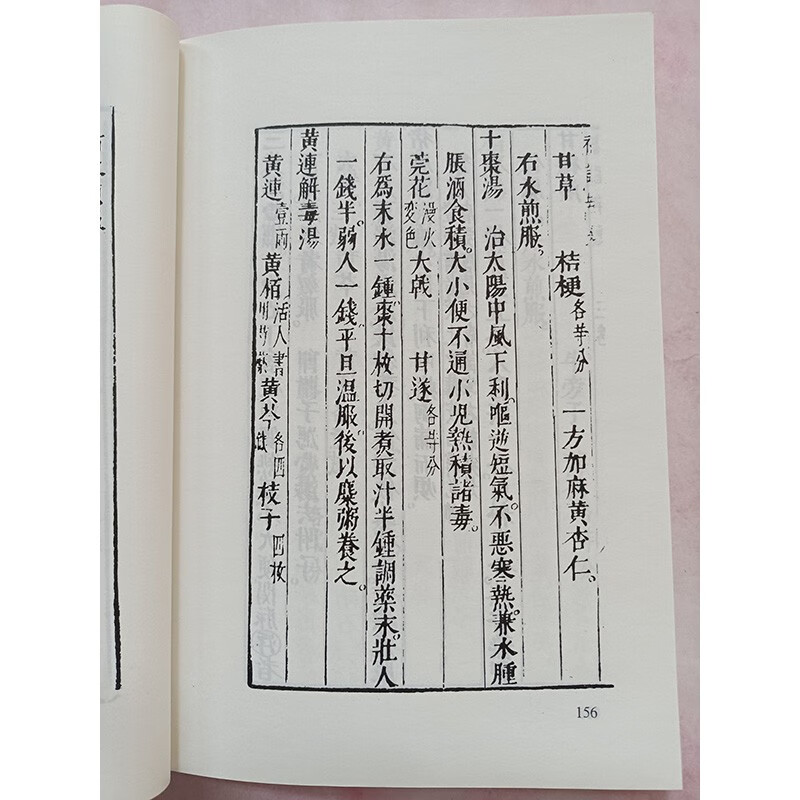 甘草 桔梗各等分 一方加麻黄杏仁。
右水煎服。
十棗湯 治太陽中風下利嘔逆短氣。不惡寒熱。兼水腫
脹酒食積。大小便不通小兒熱積諸毒。
莞花慢火变色 大戟 甘遂各等分
右爲末水一鍾棗十枚切開煮取汁半鍾調藥末。壯人
一錢半。弱人一錢平旦温服後以糜粥養之。
黄連解毒湯
黄連壹兩 黄栢活人書 黄芩各四 枝子四枚
156